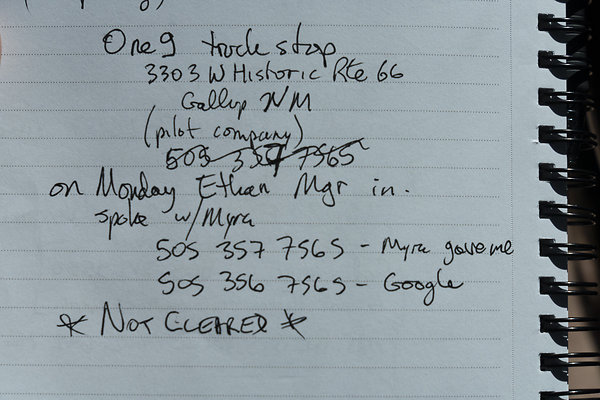 One9 truck stop
3303 W Historic Rte 66
Gallup NM
(pilot company)
505 7565
on Monday Ethan Mgr in.
spoke w/ Myra
505 357 7565 - Myra gave me
505 356 7565 - Google
* NOT CLEARED *